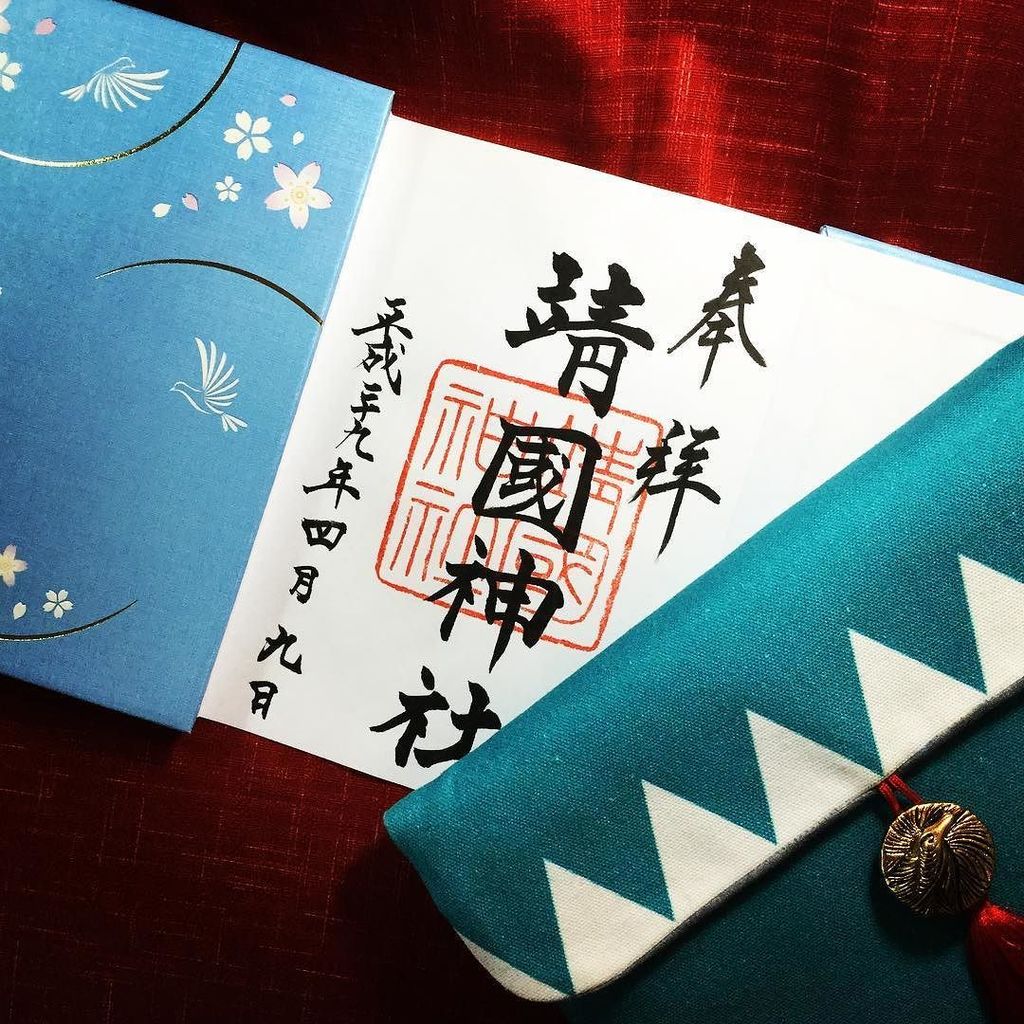 奉拝
靖國神社
平成二十九年四月九日